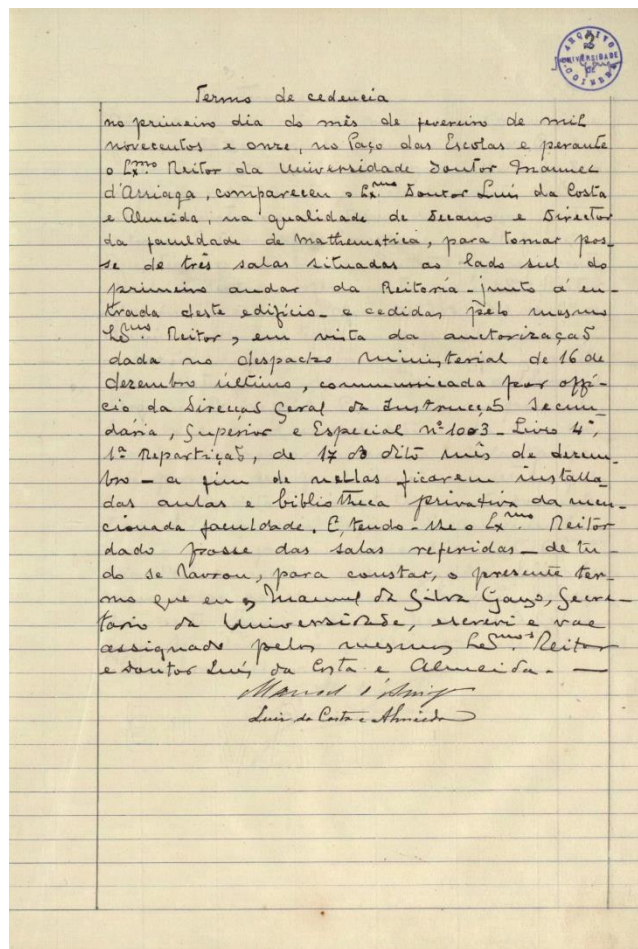 ARQUIVO
UNIVERSIDADE
DE
COIMBRA
2
Termo de cedencia
no primeiro dia do mês de fevereiro de mil
novecentos e onze, no Paço das Escolas e perante
o Ex.mo Reitor da Universidade Doutor Manuel
d'Arriaga, compareceu o Ex.mo Doutor Luís da Costa
e Almeida, na qualidade de Decano e Director
da faculdade de mathematica, para tomar pos-
se de três salas situadas ao lado sul do
primeiro andar da Reitoria - junto á en-
trada deste edifício - e cedidas pelo mesmo
Ex.mo Reitor, em vista da auctorização
dada no despacho ministerial de 16 de
dezembro último, communicada por offi-
cio da Direcção Geral da Instrucção Secun-
dária, Superior e Especial nº 1003 - Livro 4º,
1ª Repartição, de 17 do dito mês de dezem-
bro - a fim de nellas ficarem installa-
das aulas e bibliotheca privativa da men-
cionada faculdade. E, tendo-lhe o Ex.mo Reitor
dado posse das salas referidas - de tu-
do se lavrou, para constar, o presente ter-
mo que eu, Manuel da Silva Gayo, Secre-
tario da Universidade, escrevi e vae
assignado pelos mesmos Ex.mos Reitor
e Doutor Luís da Costa e Almeida. -
Manuel d'Arriaga
Luiz da Costa e Almeida